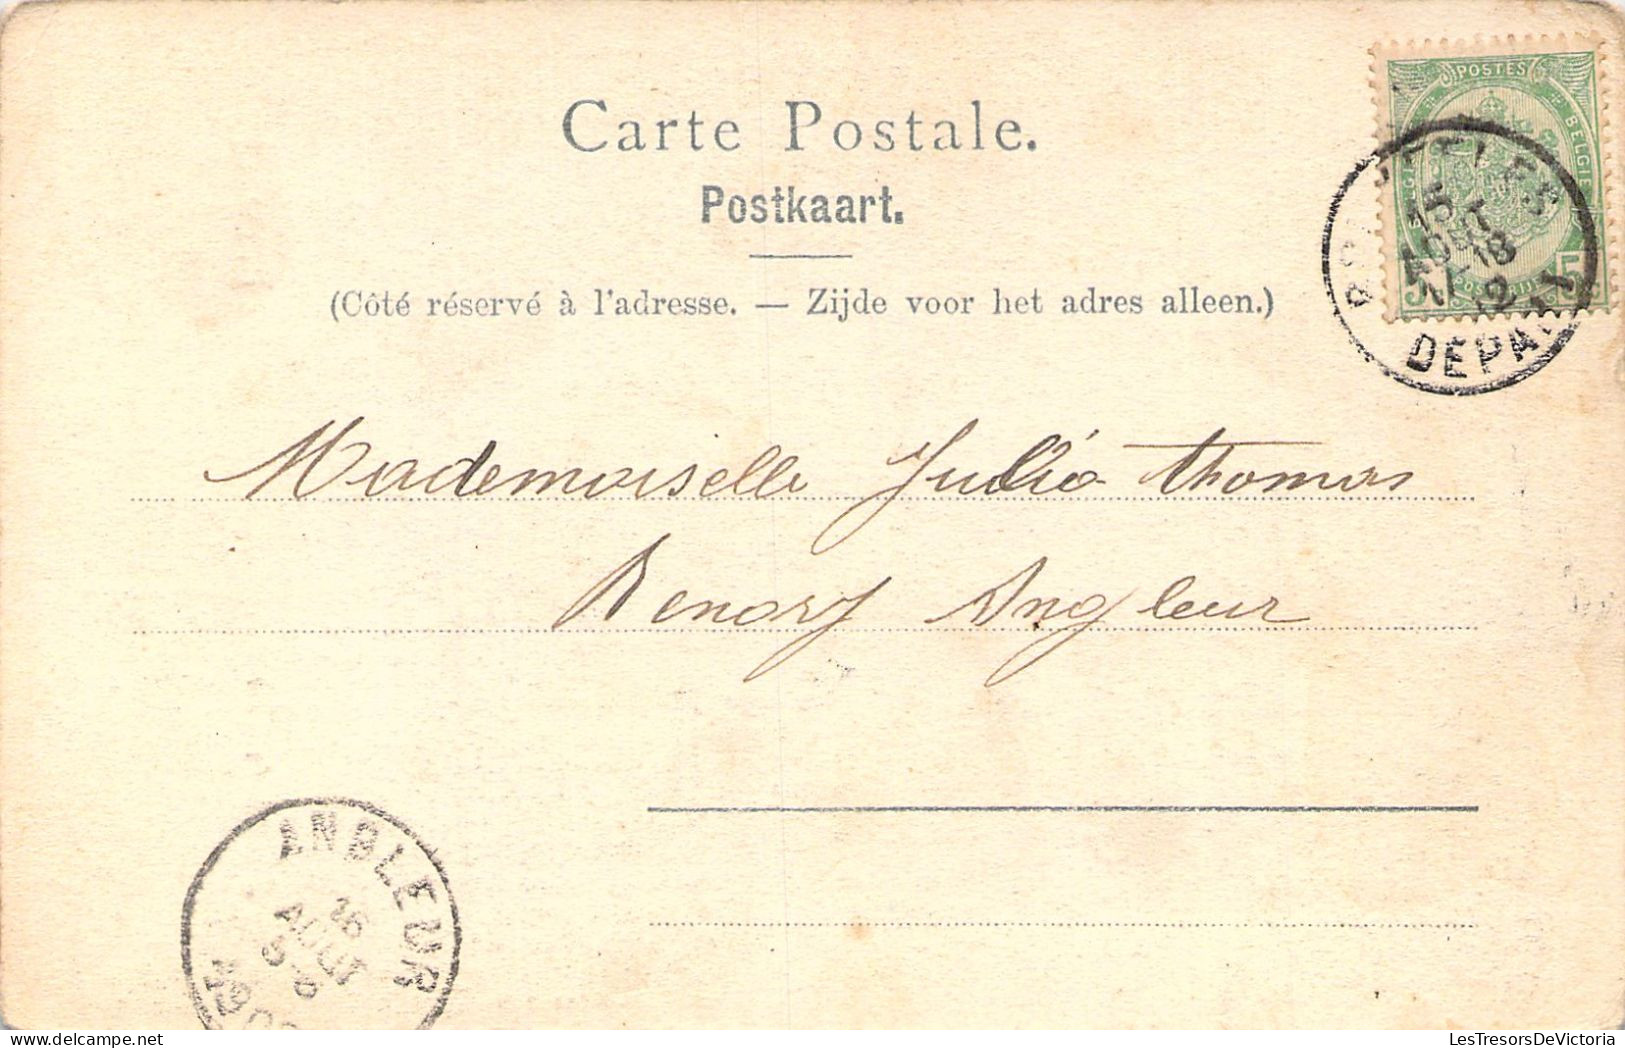 Carte Postale.
Postkaart.
(Côté réservé à l'adresse. — Zijde voor het adres alleen.)
POSTES
BELGIE
5 5
15
AOUT
18
DEPART
Mademoiselle Julia Thomas
Renory Angleur
ANGLEUR
16
AOUT
LesTresorsDeVictoria